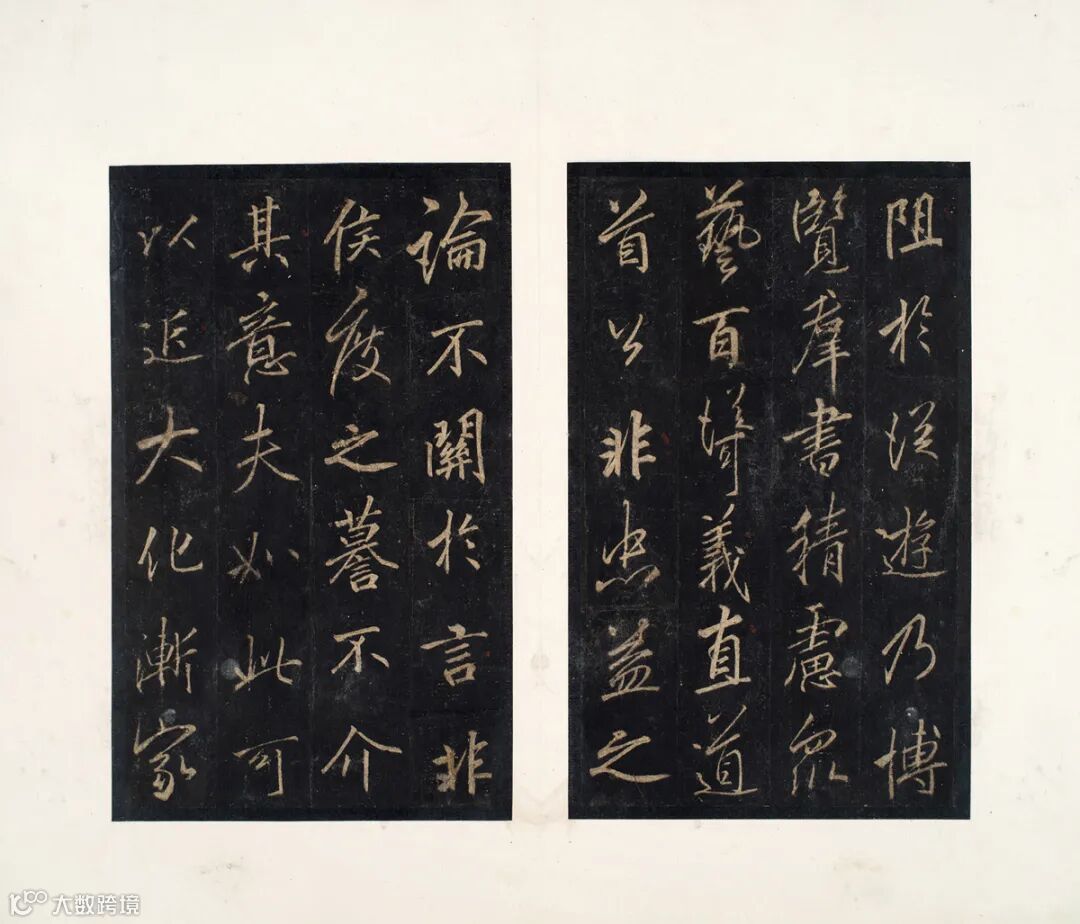 阻於從遊乃博
覽羣書精慮眾
藝百義直道
首公非忠益之
論不關於言非
侯度之謩不介
其意夫如此可
以近大化漸家
大数跨境